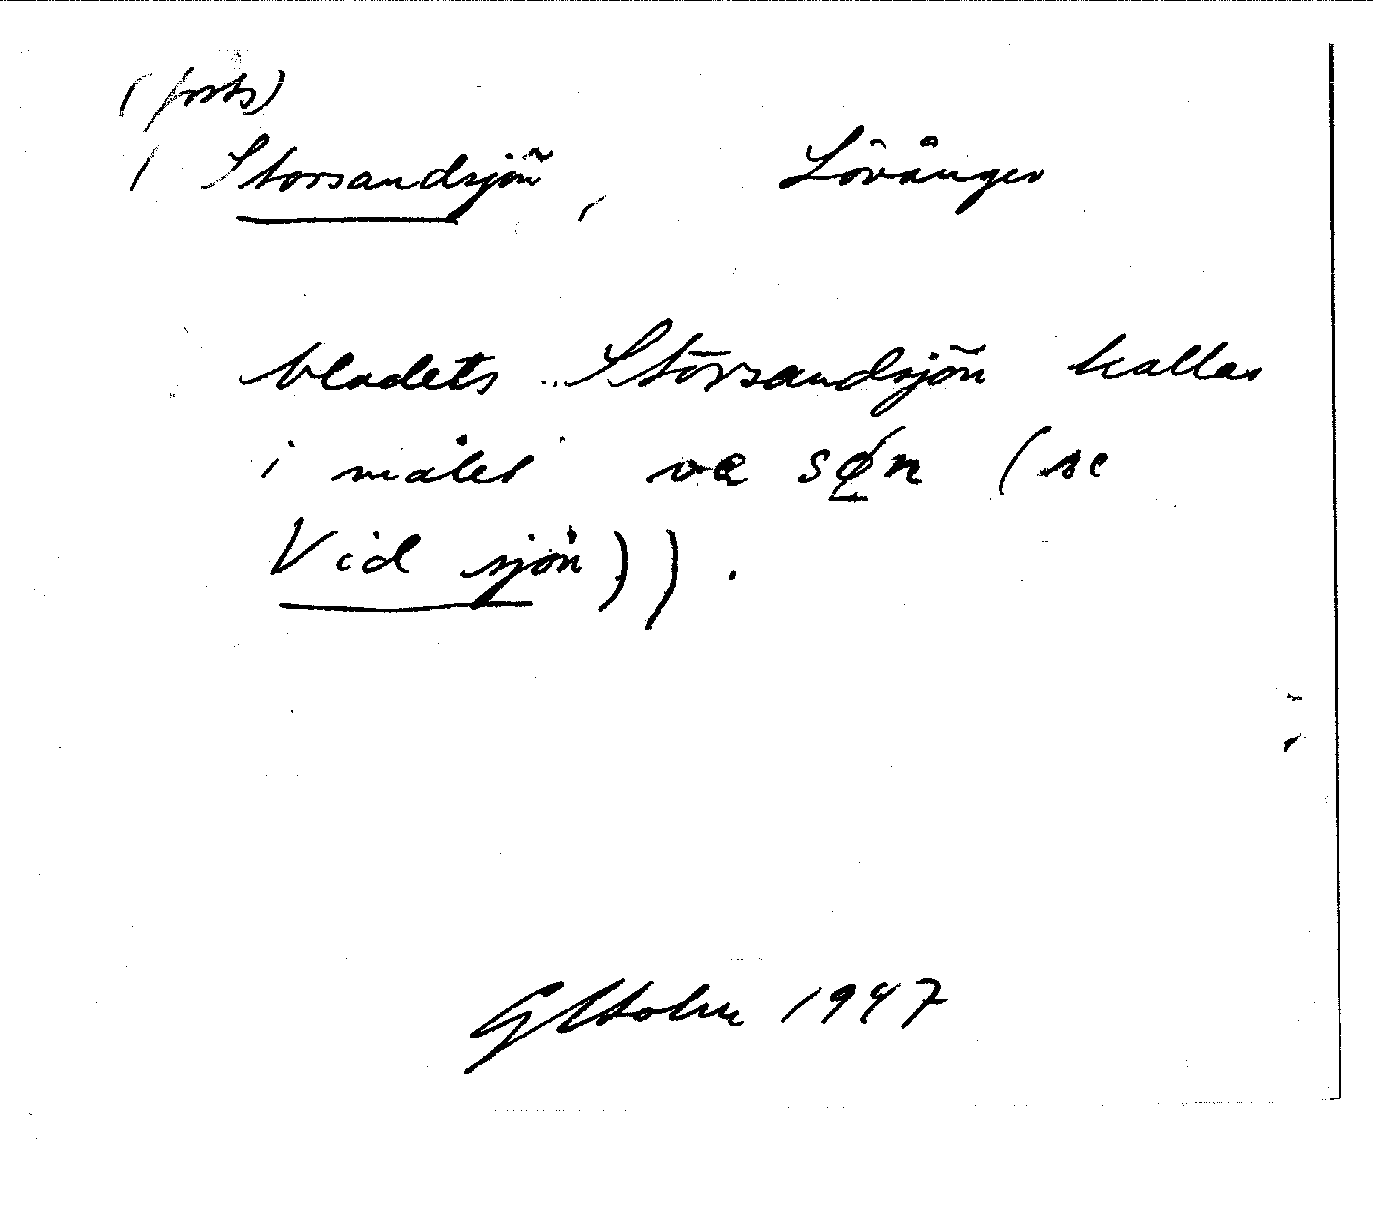 (forts)
/ Storsandsjön, Lövånger
bladets "Storsandsjön kallas
i målet va søn (se
Vid sjön)).
G Holm 1947